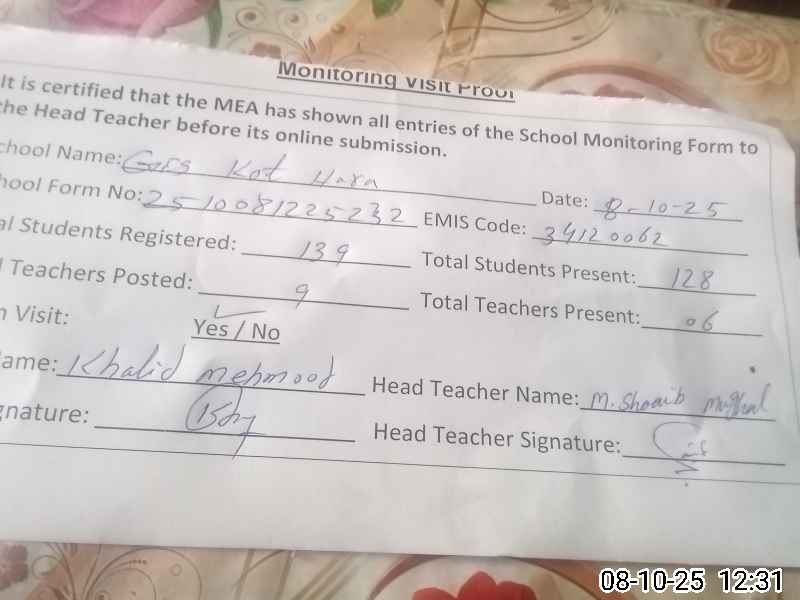 Monitoring Visit Proof
It is certified that the MEA has shown all entries of the School Monitoring Form to
the Head Teacher before its online submission.
chool Name: GBES Kot Hara Date: 8-10-25
hool Form No: 2510081225232 EMIS Code: 34120062
al Students Registered: 139 Total Students Present: 128
l Teachers Posted: 9 Total Teachers Present: 06
n Visit: Yes / No
ame: Khalid mehmood Head Teacher Name: M. Shoaib Mughal
gnature: Head Teacher Signature:
08-10-25 12:31